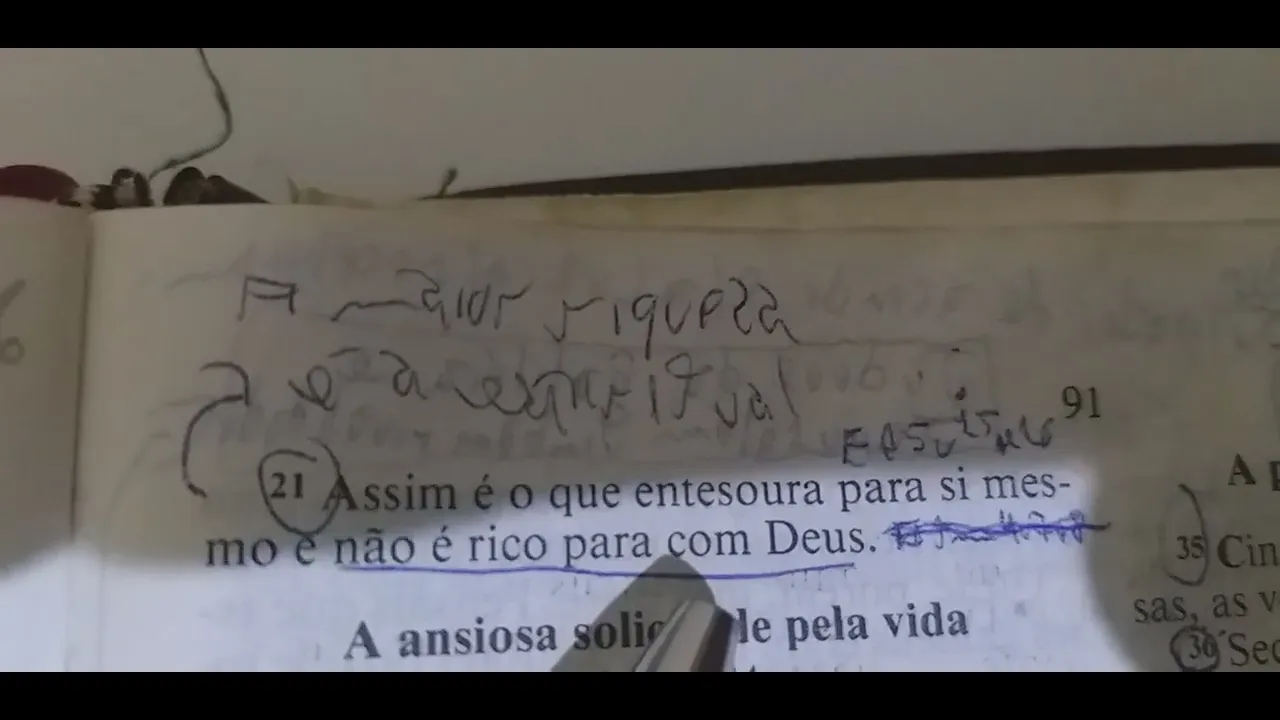 A maior riqueza
e a espiritual
91
21 Assim é o que entesoura para si mes-
mo e não é rico para com Deus.
A ansiosa pela vida
35 Cin
sas, as v
36 Sec